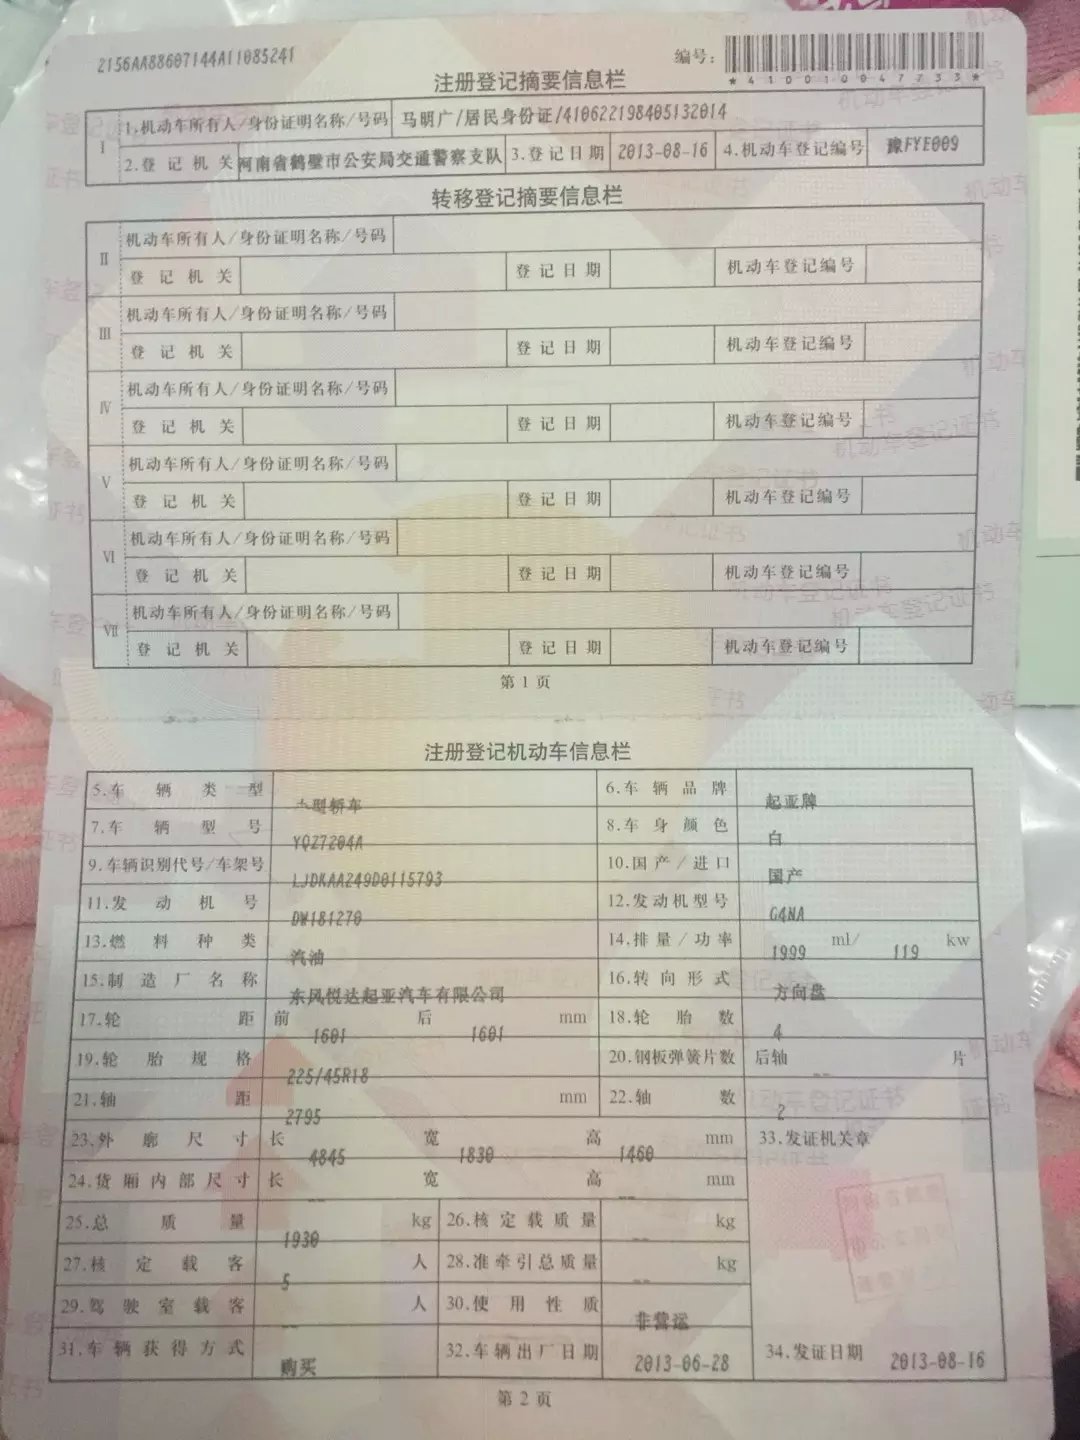 2156AA88607144A11085241
编号：
*410010047733*
注册登记摘要信息栏
I 1.机动车所有人/身份证明名称/号码 马明广/居民身份证/410622198405132014
2.登记机关 河南省鹤壁市公安局交通警察支队 3.登记日期 2013-08-16 4.机动车登记编号 豫FYE009
转移登记摘要信息栏
II 机动车所有人/身份证明名称/号码
登记机关 登记日期 机动车登记编号
III 机动车所有人/身份证明名称/号码
登记机关 登记日期 机动车登记编号
IV 机动车所有人/身份证明名称/号码
登记机关 登记日期 机动车登记编号
V 机动车所有人/身份证明名称/号码
登记机关 登记日期 机动车登记编号
VI 机动车所有人/身份证明名称/号码
登记机关 登记日期 机动车登记编号
VII 机动车所有人/身份证明名称/号码
登记机关 登记日期 机动车登记编号
第1页
注册登记机动车信息栏
5.车辆类型 小型轿车 6.车辆品牌 起亚牌
7.车辆型号 YQZ7204A 8.车身颜色 白
9.车辆识别代号/车架号 LJDKAA249D0115793 10.国产/进口 国产
11.发动机号 DW181270 12.发动机型号 G4NA
13.燃料种类 汽油 14.排量/功率 1999 ml/ 119 kw
15.制造厂名称 东风悦达起亚汽车有限公司 16.转向形式 方向盘
17.轮距 前 1601 后 1601 mm 18.轮胎数 4
19.轮胎规格 225/45R18 20.钢板弹簧片数 后轴 -- 片
21.轴距 2795 mm 22.轴数 2
23.外廓尺寸 长 4845 宽 1830 高 1460 mm 33.发证机关章
24.货厢内部尺寸 长 -- 宽 高 -- mm
25.总质量 1930 kg 26.核定载质量 -- kg
27.核定载客 5 人 28.准牵引总质量 -- kg
29.驾驶室载客 -- 人 30.使用性质 非营运
31.车辆获得方式 购买 32.车辆出厂日期 2013-06-28 34.发证日期 2013-08-16
第2页